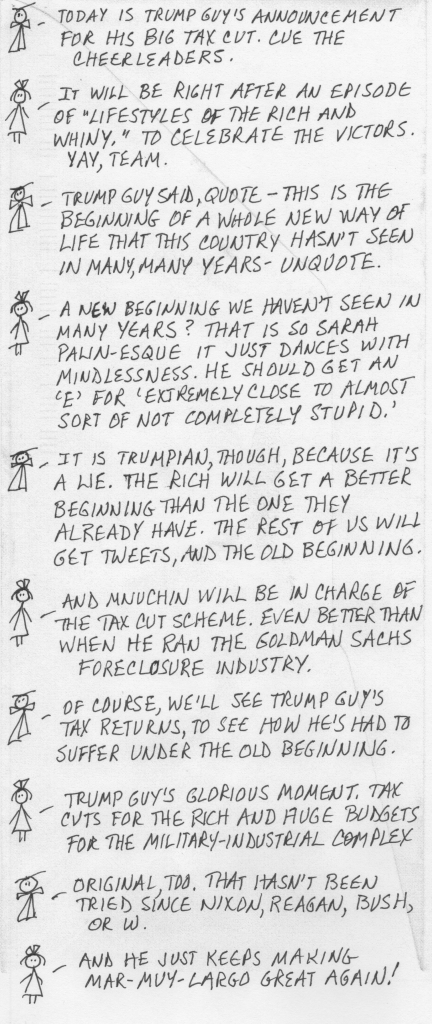 TODAY IS TRUMP GUY'S ANNOUNCEMENT
FOR HIS BIG TAX CUT. CUE THE
CHEERLEADERS.
IT WILL BE RIGHT AFTER AN EPISODE
OF "LIFESTYLES OF THE RICH AND
WHINY." TO CELEBRATE THE VICTORS.
YAY, TEAM.
TRUMP GUY SAID, QUOTE - THIS IS THE
BEGINNING OF A WHOLE NEW WAY OF
LIFE THAT THIS COUNTRY HASN'T SEEN
IN MANY, MANY YEARS - UNQUOTE.
A NEW BEGINNING WE HAVEN'T SEEN IN
MANY YEARS? THAT IS SO SARAH
PALIN-ESQUE IT JUST DANCES WITH
MINDLESSNESS. HE SHOULD GET AN
'E' FOR 'EXTREMELY CLOSE TO ALMOST
SORT OF NOT COMPLETELY STUPID.'
IT IS TRUMPIAN, THOUGH, BECAUSE IT'S
A LIE. THE RICH WILL GET A BETTER
BEGINNING THAN THE ONE THEY
ALREADY HAVE. THE REST OF US WILL
GET TWEETS, AND THE OLD BEGINNING.
AND MNUCHIN WILL BE IN CHARGE OF
THE TAX CUT SCHEME. EVEN BETTER THAN
WHEN HE RAN THE GOLDMAN SACHS
FORECLOSURE INDUSTRY.
OF COURSE, WE'LL SEE TRUMP GUY'S
TAX RETURNS, TO SEE HOW HE'S HAD TO
SUFFER UNDER THE OLD BEGINNING.
TRUMP GUY'S GLORIOUS MOMENT. TAX
CUTS FOR THE RICH AND HUGE BUDGETS
FOR THE MILITARY-INDUSTRIAL COMPLEX
ORIGINAL, TOO. THAT HASN'T BEEN
TRIED SINCE NIXON, REAGAN, BUSH,
OR W.
AND HE JUST KEEPS MAKING
MAR-MUY-LARGO GREAT AGAIN!